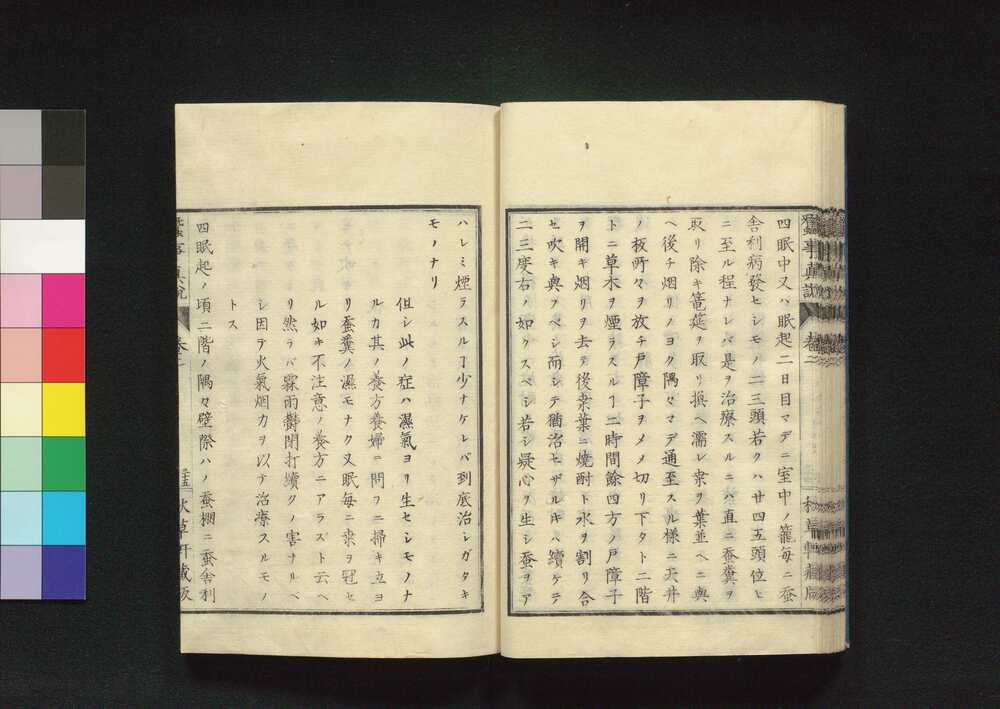 蚕事真説
巻二
秋草軒蔵版
四眠中又ハ眠起二日目マデニ室中ノ籠毎ニ蚕
舎利病發セシモノ二三頭若クハ廿四五頭位ヒ
ニ至ル程ナレバ是ヲ治療スルニハ直ニ蚕糞ヲ
取リ除キ篭莚ヲ取リ換ヘ濡レ桒ヲ葉並ヘニ與
ヘ後チ烟リノヨク隅々マデ通至スル様ニ天井
ノ板所々ヲ放チ戸障子ヲメメ切リ下タト二階
トニ草木ヲ煙ラスルヿ二時間餘四方ノ戸障子
ヲ開キ烟リヲ去テ後桒葉ニ焼酎ト水ヲ割リ合
セ吹キ與フベシ而シテ猶治セザルキハ續ケテ
二三度右ノ如クスベシ若シ疑心ヲ生シ蚕ヲア
ハレミ煙ラスルヿ少ナケレバ到底治シガタキ
モノナリ
但シ此ノ症ハ濕氣ヨリ生セシモノナ
ルカ其ノ養方養婦ニ問フニ掃キ立ヨ
リ蚕糞ノ濕モナク又眠毎ニ桒ヲ冠セ
ル如キ不注意ノ養方ニアラズト云ヘ
リ然ラバ霖雨欝閉打續クノ害ナルベ
シ因テ火氣烟力ヲ以テ治療スルモノ
トス
四眠起ノ頃二階ノ隅々壁際ハノ蚕棚ニ蚕舎利
蚕事真説
秋草軒蔵版